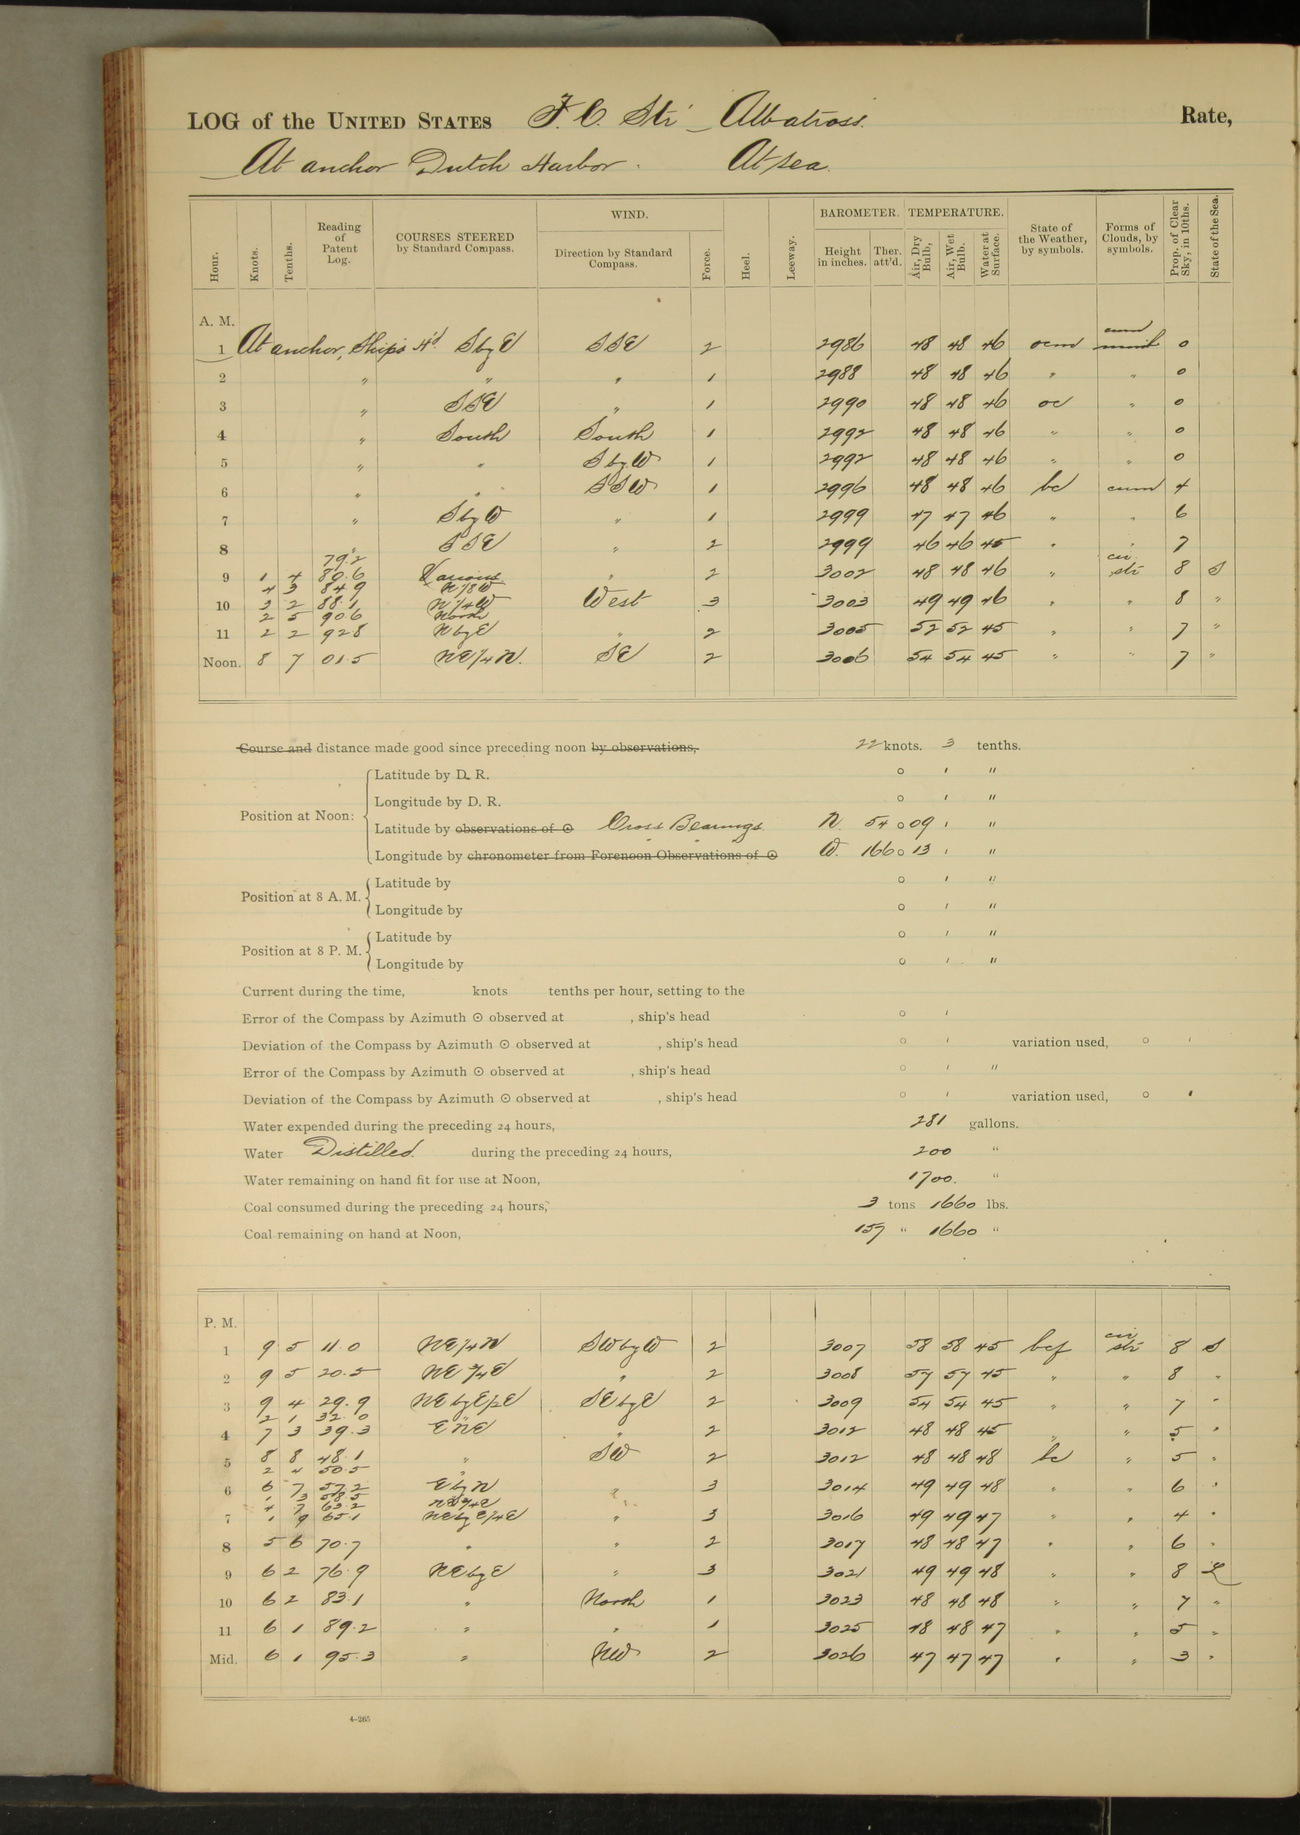 LOG of the UNITED STATES F. C. Str Albatross. Rate,
At anchor Dutch Harbor. At sea.
Hour. Knots. Tenths. Reading of Patent Log. COURSES STEERED by Standard Compass. WIND. Direction by Standard Compass. Force. Heel. Leeway. BAROMETER. Height in inches. Ther. att'd. TEMPERATURE. Air, Dry Bulb, Air, Wet Bulb. Water at Surface. State of the Weather, by symbols. Forms of Clouds, by symbols. Prop. of Clear Sky, in 10ths. State of the Sea.
A. M.
1 At anchor, Ship's H'd S by E SSE 2 2986 48 48 46 ocm cum 0
2 " " " 1 2988 48 48 46 " " 0
3 " SSE " 1 2990 48 48 46 oc " 0
4 " South South 1 2992 48 48 46 " " 0
5 " " S by W 1 2992 48 48 46 " " 0
6 " " SSW 1 2996 48 48 46 bc cum 4
7 " S by W " 1 2999 47 47 46 " " 6
8 " SSE " 2 2999 46 46 45 " " 7
79.2
9 1 4 80.6 Various " 2 3002 48 48 46 " cu. str 8 S
4 3 84 9 N 1/8 W
10 3 2 88.1 N 1/4 W West 3 3003 49 49 46 " " 8 "
2 5 90 6 North
11 2 2 92 8 N by E " 2 3005 52 52 45 " " 7 "
Noon. 8 7 01.5 NE 1/4 N. SE 2 3006 54 54 45 " " 7 "
Course and distance made good since preceding noon by observations, 22 knots. 3 tenths.
Position at Noon:
Latitude by D. R. ° ' "
Longitude by D. R. ° ' "
Latitude by observations of ☉ Cross Bearings N. 54 ° 09 ' "
Longitude by chronometer from Forenoon Observations of ☉ W. 166 ° 13 ' "
Position at 8 A. M.
Latitude by ° ' "
Longitude by ° ' "
Position at 8 P. M.
Latitude by ° ' "
Longitude by ° ' "
Current during the time, knots tenths per hour, setting to the
Error of the Compass by Azimuth ☉ observed at , ship's head ° '
Deviation of the Compass by Azimuth ☉ observed at , ship's head ° ' variation used, ° '
Error of the Compass by Azimuth ☉ observed at , ship's head ° ' "
Deviation of the Compass by Azimuth ☉ observed at , ship's head ° ' variation used, ° '
Water expended during the preceding 24 hours, 281 gallons.
Water Distilled during the preceding 24 hours, 200 "
Water remaining on hand fit for use at Noon, 1700. "
Coal consumed during the preceding 24 hours, 3 tons 1660 lbs.
Coal remaining on hand at Noon, 157 " 1660 "
P. M.
1 9 5 11.0 NE 1/4 N SW by W 2 3007 58 58 45 bcf cir str 8 S
2 9 5 20.5 NE 3/4 E " 2 3008 57 57 45 " " 8 "
3 9 4 29.9 NE by E 1/2 E SE by E 2 3009 54 54 45 " " 7 "
2 1 32.0 "
4 7 3 39.3 ENE " 2 3012 48 48 45 " " 5 "
5 8 8 48.1 " SW 2 3012 48 48 48 bc " 5 "
2 4 50.5 "
6 6 7 57.2 E by N " 3 3014 49 49 48 " " 6 "
1 3 58.5
4 7 63.2
7 1 9 65.1 NE by E 1/4 E " 3 3016 49 49 47 " " 4 "
8 5 6 70.7 " " 2 3017 48 48 47 " " 6 "
9 6 2 76.9 NE by E " 3 3021 49 49 48 " " 8 L
10 6 2 83.1 " North 1 3023 48 48 48 " " 7 "
11 6 1 89.2 " " 1 3025 48 48 47 " " 5 "
Mid. 6 1 95.3 " NW 2 3026 47 47 47 " " 3 "
4-265